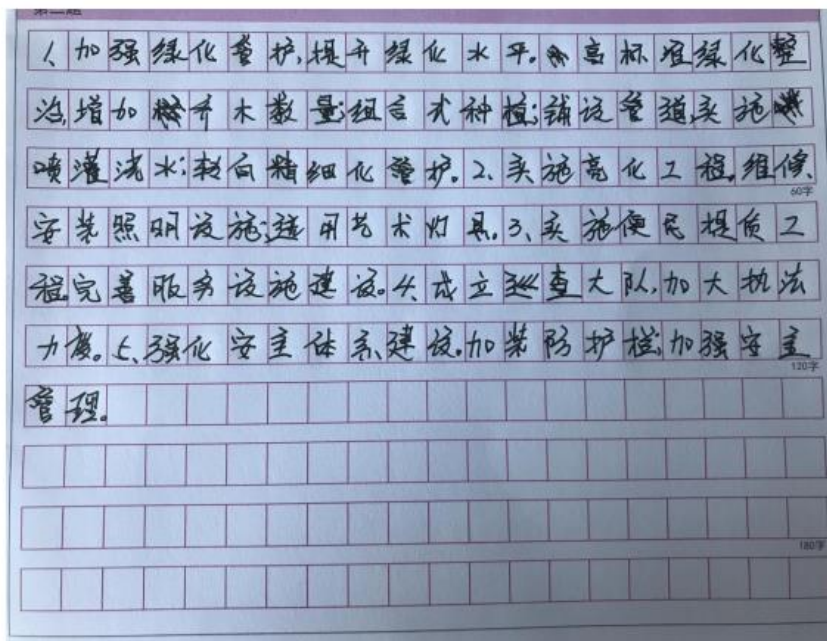 第二题
1、加强绿化管护,提升绿化水平。高标准绿化整
治,增加乔木数量;组合式种植;铺设管道,实施
喷灌浇水;转向精细化管护。2、实施亮化工程。维修、
60字
安装照明设施;选用艺术灯具。3、实施便民提质工
程。完善服务设施建设。4、成立巡查大队,加大执法
力度。5、强化安全体系建设。加装防护栏;加强安全
120字
管理。
180字